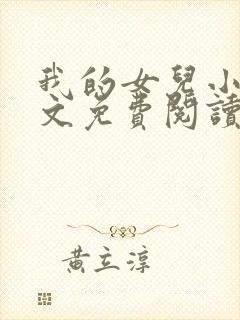 我的女兒小
文免費閱讀
黃立淳